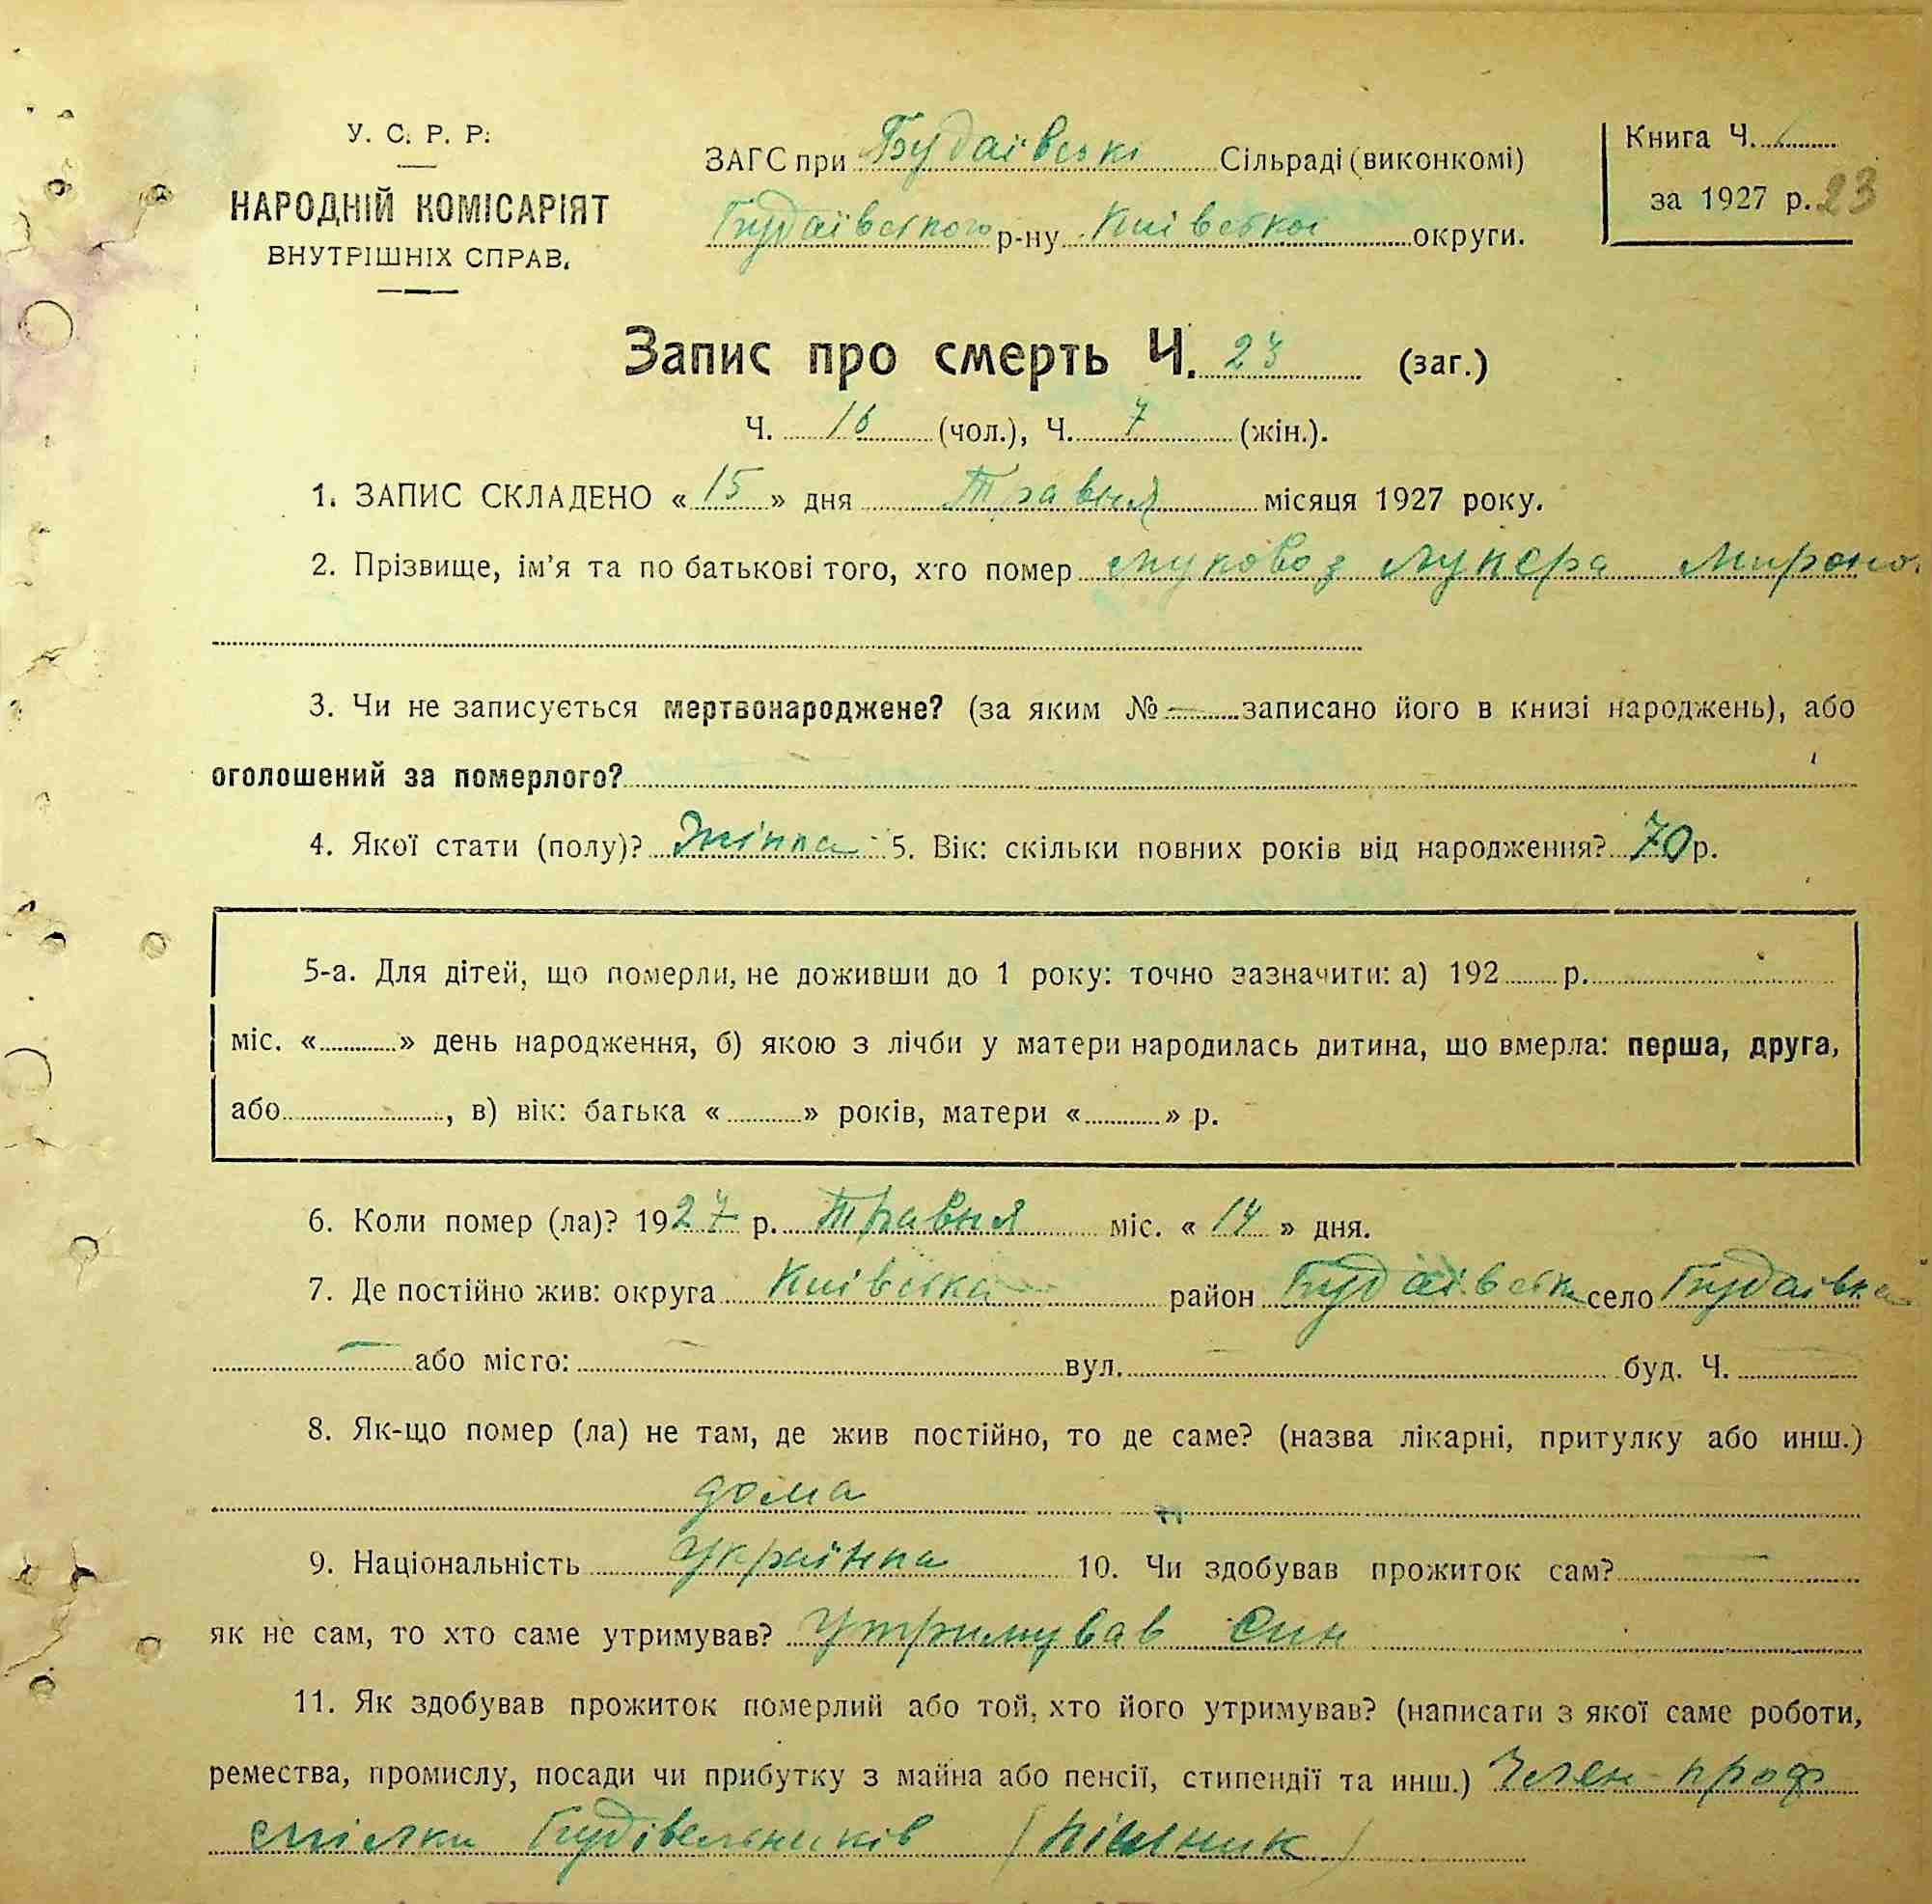 У. С. Р. Р.
НАРОДНІЙ КОМІСАРІЯТ
ВНУТРІШНІХ СПРАВ.
ЗАГС при Будаївські Сільраді (виконкомі)
Будаївського р-ну Київської округи.
Книга Ч.
за 1927 р. 23
Запис про смерть Ч. 23 (заг.)
Ч. 16 (чол.), Ч. 7 (жін.).
1. ЗАПИС СКЛАДЕНО « 15 » дня Травня місяця 1927 року.
2. Прізвище, ім'я та по батькові того, хто помер Муковоз Лукера Мироно.
3. Чи не записується мертвонароджене? (за яким № — записано його в книзі народжень), або
оголошений за померлого?
4. Якої стати (полу)? Жінка 5. Вік: скільки повних років від народження? 70 р.
5-а. Для дітей, що померли, не доживши до 1 року: точно зазначити: а) 192 р.
міс. « » день народження, б) якою з лічби у матери народилась дитина, що вмерла: перша, друга,
або , в) вік: батька « » років, матери « » р.
6. Коли помер (ла)? 1927 р. Травня міс. « 14 » дня.
7. Де постійно жив: округа Київська район Будаївськ село Будаївка
— або місто: вул. буд. Ч.
8. Як-що помер (ла) не там, де жив постійно, то де саме? (назва лікарні, притулку або инш.)
дома
9. Національність Українка 10. Чи здобував прожиток сам? —
як не сам, то хто саме утримував? Утримував Син
11. Як здобував прожиток померлий або той, хто його утримував? (написати з якої саме роботи,
ремества, промислу, посади чи прибутку з майна або пенсії, стипендії та инш.) Член проф
спілки Будівельників (пічник)